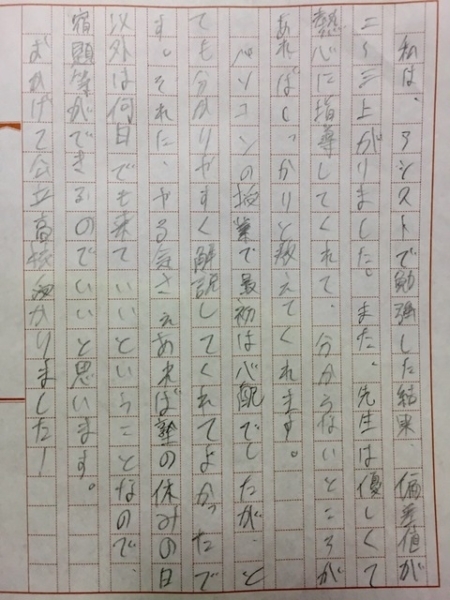 私は、アシストで勉強した結果、偏差値が
二～三上がりました。また、先生は優しくて
熱心に指導してくれて、分からないところが
あればしっかりと教えてくれます。
パソコンの授業で最初は心配でしたが、と
ても分かりやすく解説してくれてよかったで
す。それに、やる気さえあれば塾の休みの日
以外は何日でも来ていいということなので、
宿題等ができるのでいいと思います。
おかげで公立高校受かりました！